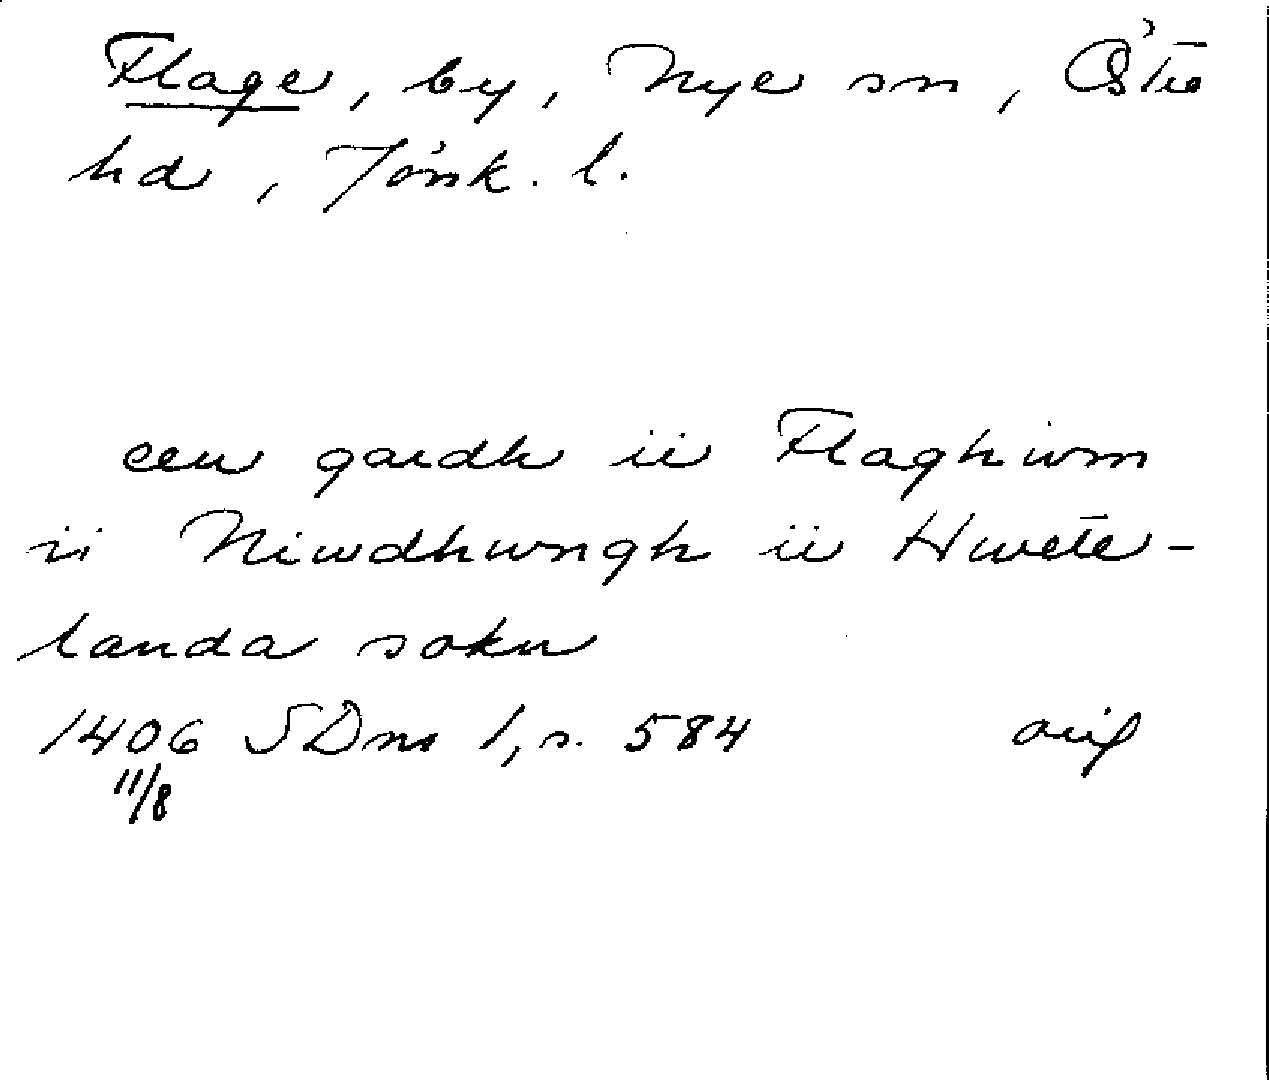 Flage, by, Nye sn, Östra
hd, Jönk. l.
een gardh ii Flaghwm
ii Niwdhwngh ii Hwete-
landa sokn
1406 SDns 1, s. 584 orig
11/8